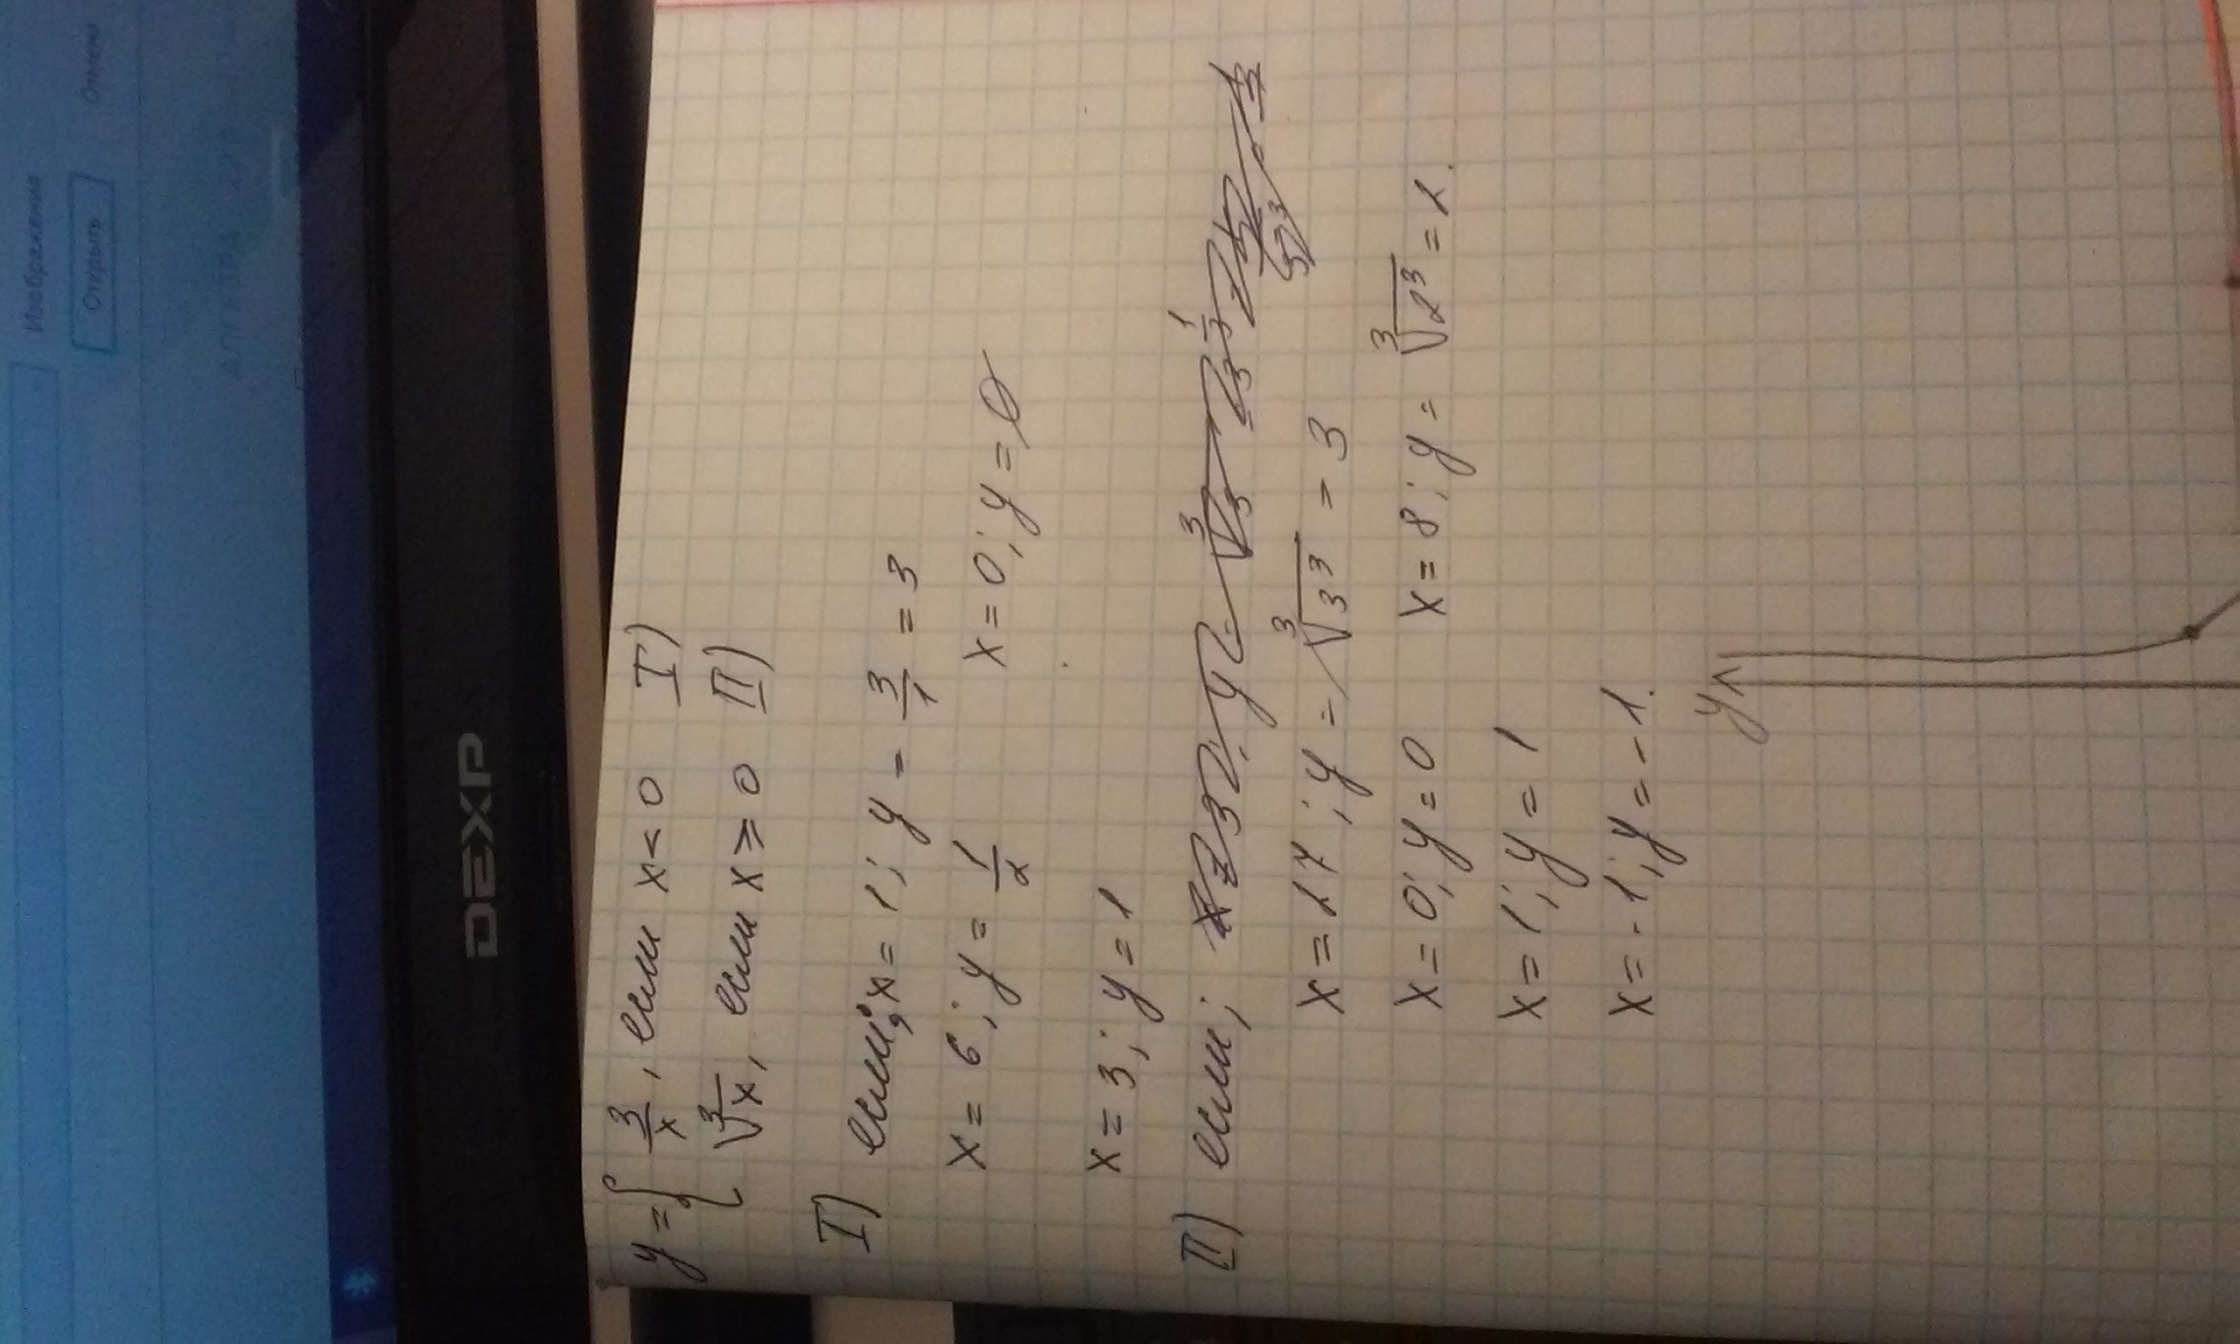 Изображения
Открыть
Отмена
DEXP
y = { 3/x, если x < 0 I)
∛x, если x ≥ 0 II)
I) если; x = 1; y = 3/1 = 3
x = 6; y = 1/2 x = 0; y = ∅
x = 3; y = 1
II) если;
x = 27; y = ∛3³ = 3
x = 0; y = 0 x = 8; y = ∛2³ = 2.
x = 1; y = 1
x = -1; y = -1.
y